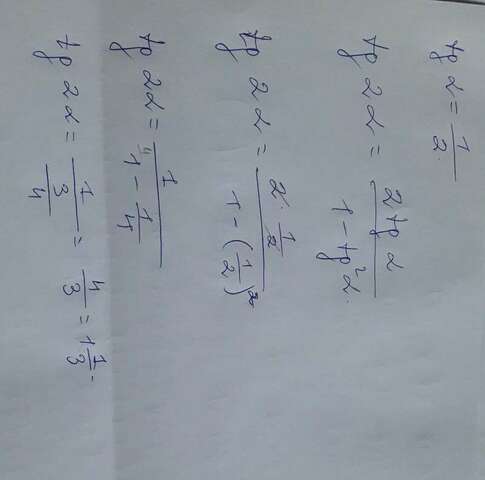 tg α = 1/2.
tg 2α = 2tg α / 1 - tg²α.
tg 2α = 2·1/2 / 1 - (1/2)²
tg 2α = 1 / 1 - 1/4
tg 2α = 1 / 3/4 = 4/3 = 1 1/3.